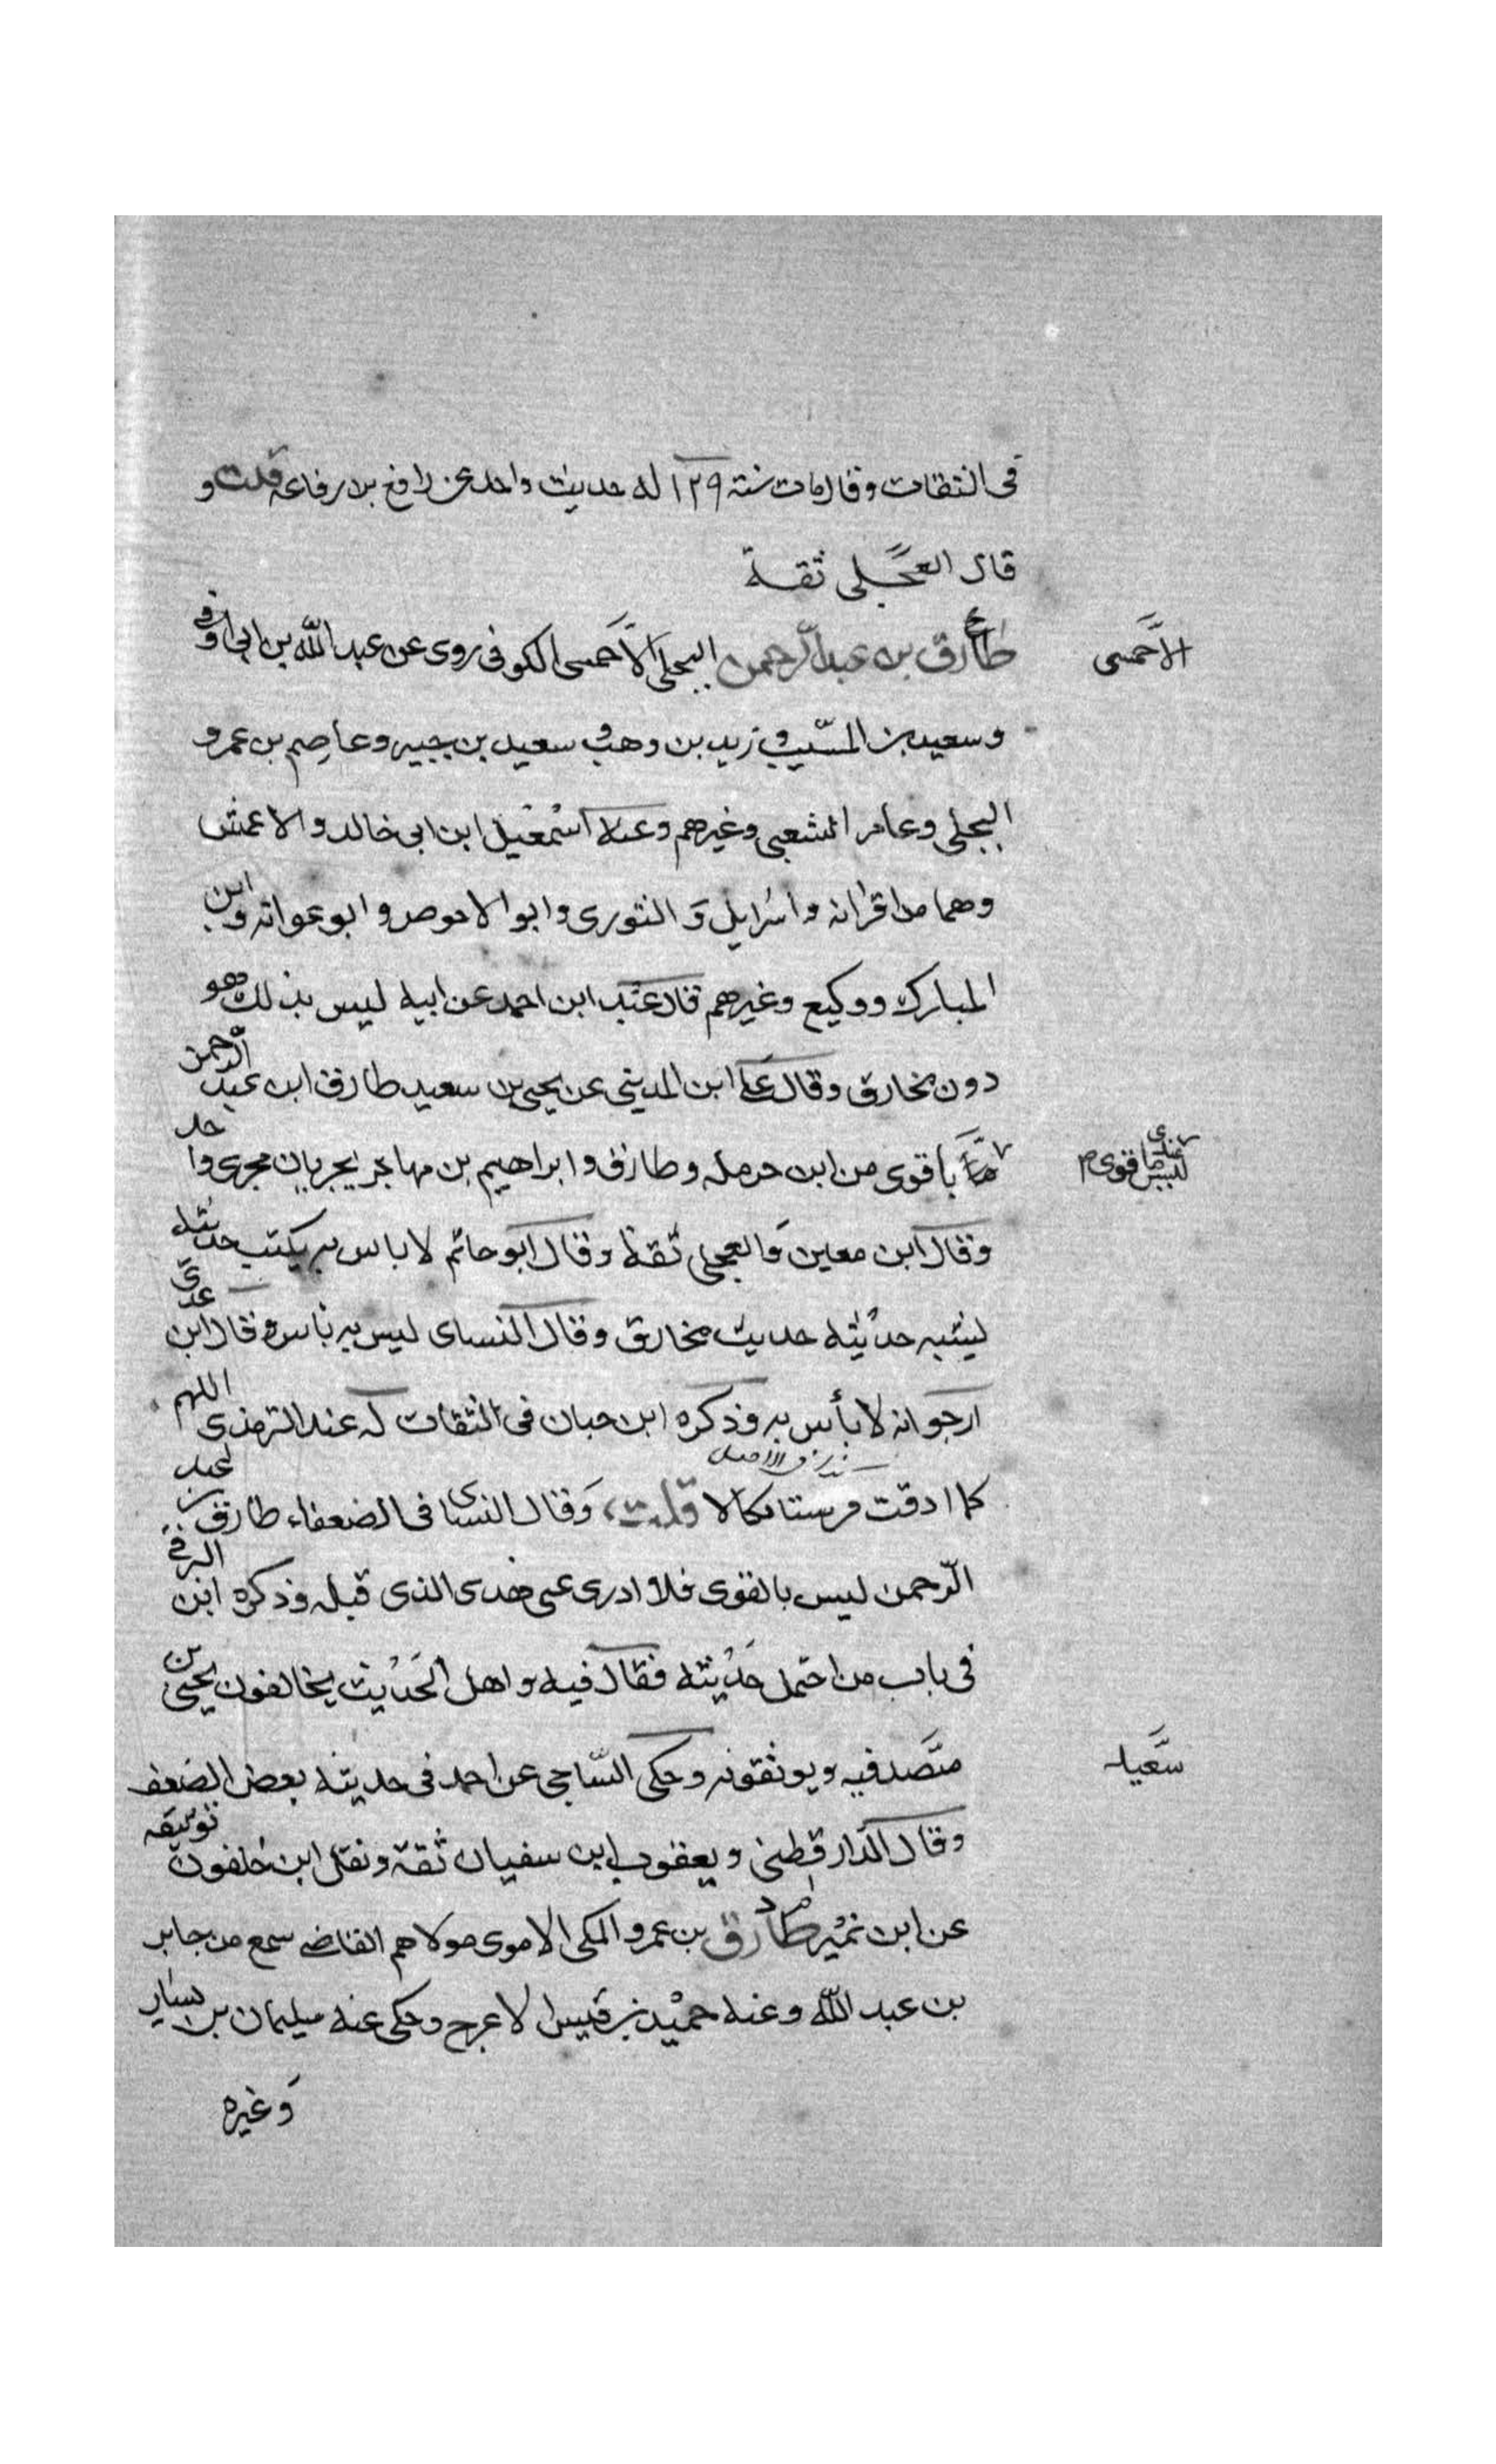 فى الثقات وقال مات سنة ١٢٩ له حديث واحد عن رافع بن رفاعة قلت و
قال العجلى ثقة
طارق بن عبد الرحمن البجلى الاحمسى الكوفى روى عن عبد الله بن ابى اوفى
الاحمسى
وسعيد بن المسيب وزيد بن وهب وسعيد بن جبير وعاصم بن عمرو
البجلى وعامر الشعبى وغيرهم وعنه اسمعيل ابن ابى خالد والاعمش
وهما من اقرانه واسرايل والثورى وابو الاحوص وابو عوانه وابن
المبارك ووكيع وغيرهم قال عبد ابن احمد عن ابيه ليس بذلك هو
دون مخارق وقال على ابن المدينى عن يحيى بن سعيد طارق ابن عبد الرحمن
باقوى من ابن حرمله وطارق وابراهيم بن مهاجر يجريان مجرى واحد
ليس عندى باقوى م
وقال ابن معين والعجلى ثقة وقال ابو حاتم لا باس به يكتب حديثه
يشبه حديثه حديث مخارق وقال النساى ليس به باس وقال ابن عدى
ارجو انه لا بأس به وذكره ابن حبان فى الثقات له عند الترمذى اللهم
كما اذقت نكالا قلت وقال النساى فى الضعفاء طارق بن عبد
الرحمن ليس بالقوى فلا ادرى عنى هذى الذى قبله وذكره ابن البرقى
فى باب من احتمل حديثه فقال فيه واهل الحديث يخالفون يحيى بن
سعيد
فيه ويوثقونه وحكى الساجى عن احمد فى حديثه بعض الضعف
وقال الدارقطنى ويعقوب ابن سفيان ثقة ونقل ابن خلفون توثيقه
عن ابن نمير طارق بن عمرو المكى الاموى مولاهم القاضى سمع من جابر
بن عبد الله وعنه حميد بن قيس الاعرج وحكى عنه سليمان بن يسار
وغيره